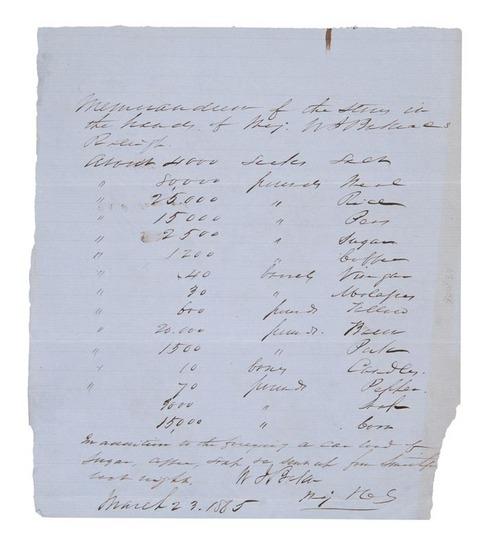 Memorandum of the stores in
the hands of Maj. W H
Raleigh.
About 4000 Sacks Salt
" 80,000 pounds Meal
" 25,000 " Rice
" 15000 " Peas
" 2500 " Sugar
" 1200 " Coffee
" 40 barrels Vinegar
" 30 " Molasses
" 600 pounds Tallow
" 20.000 pounds. Bacon
" 1500 " Pork
" 10 boxes Candles.
" 70 pounds Pepper.
3000 " Soap
15,000 " Corn
In addition to the foregoing a car load of
Sugar, coffee, soap, &c sent up from
last night.
Maj & CS
March 23. 1865